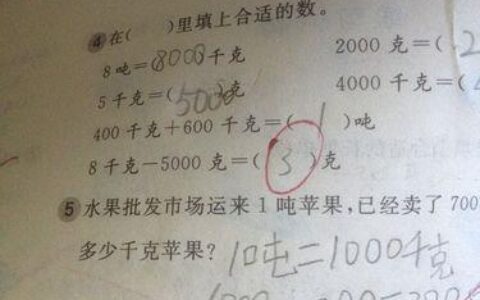 4 在(  )里填上合适的数。
8吨=8000千克 2000克=(2
5千克=(5000)克 4000千克=(
400千克+600千克=(1)吨
8千克-5000克=(3)克
5 水果批发市场运来1吨苹果,已经卖了700
多少千克苹果? 1吨=1000千克